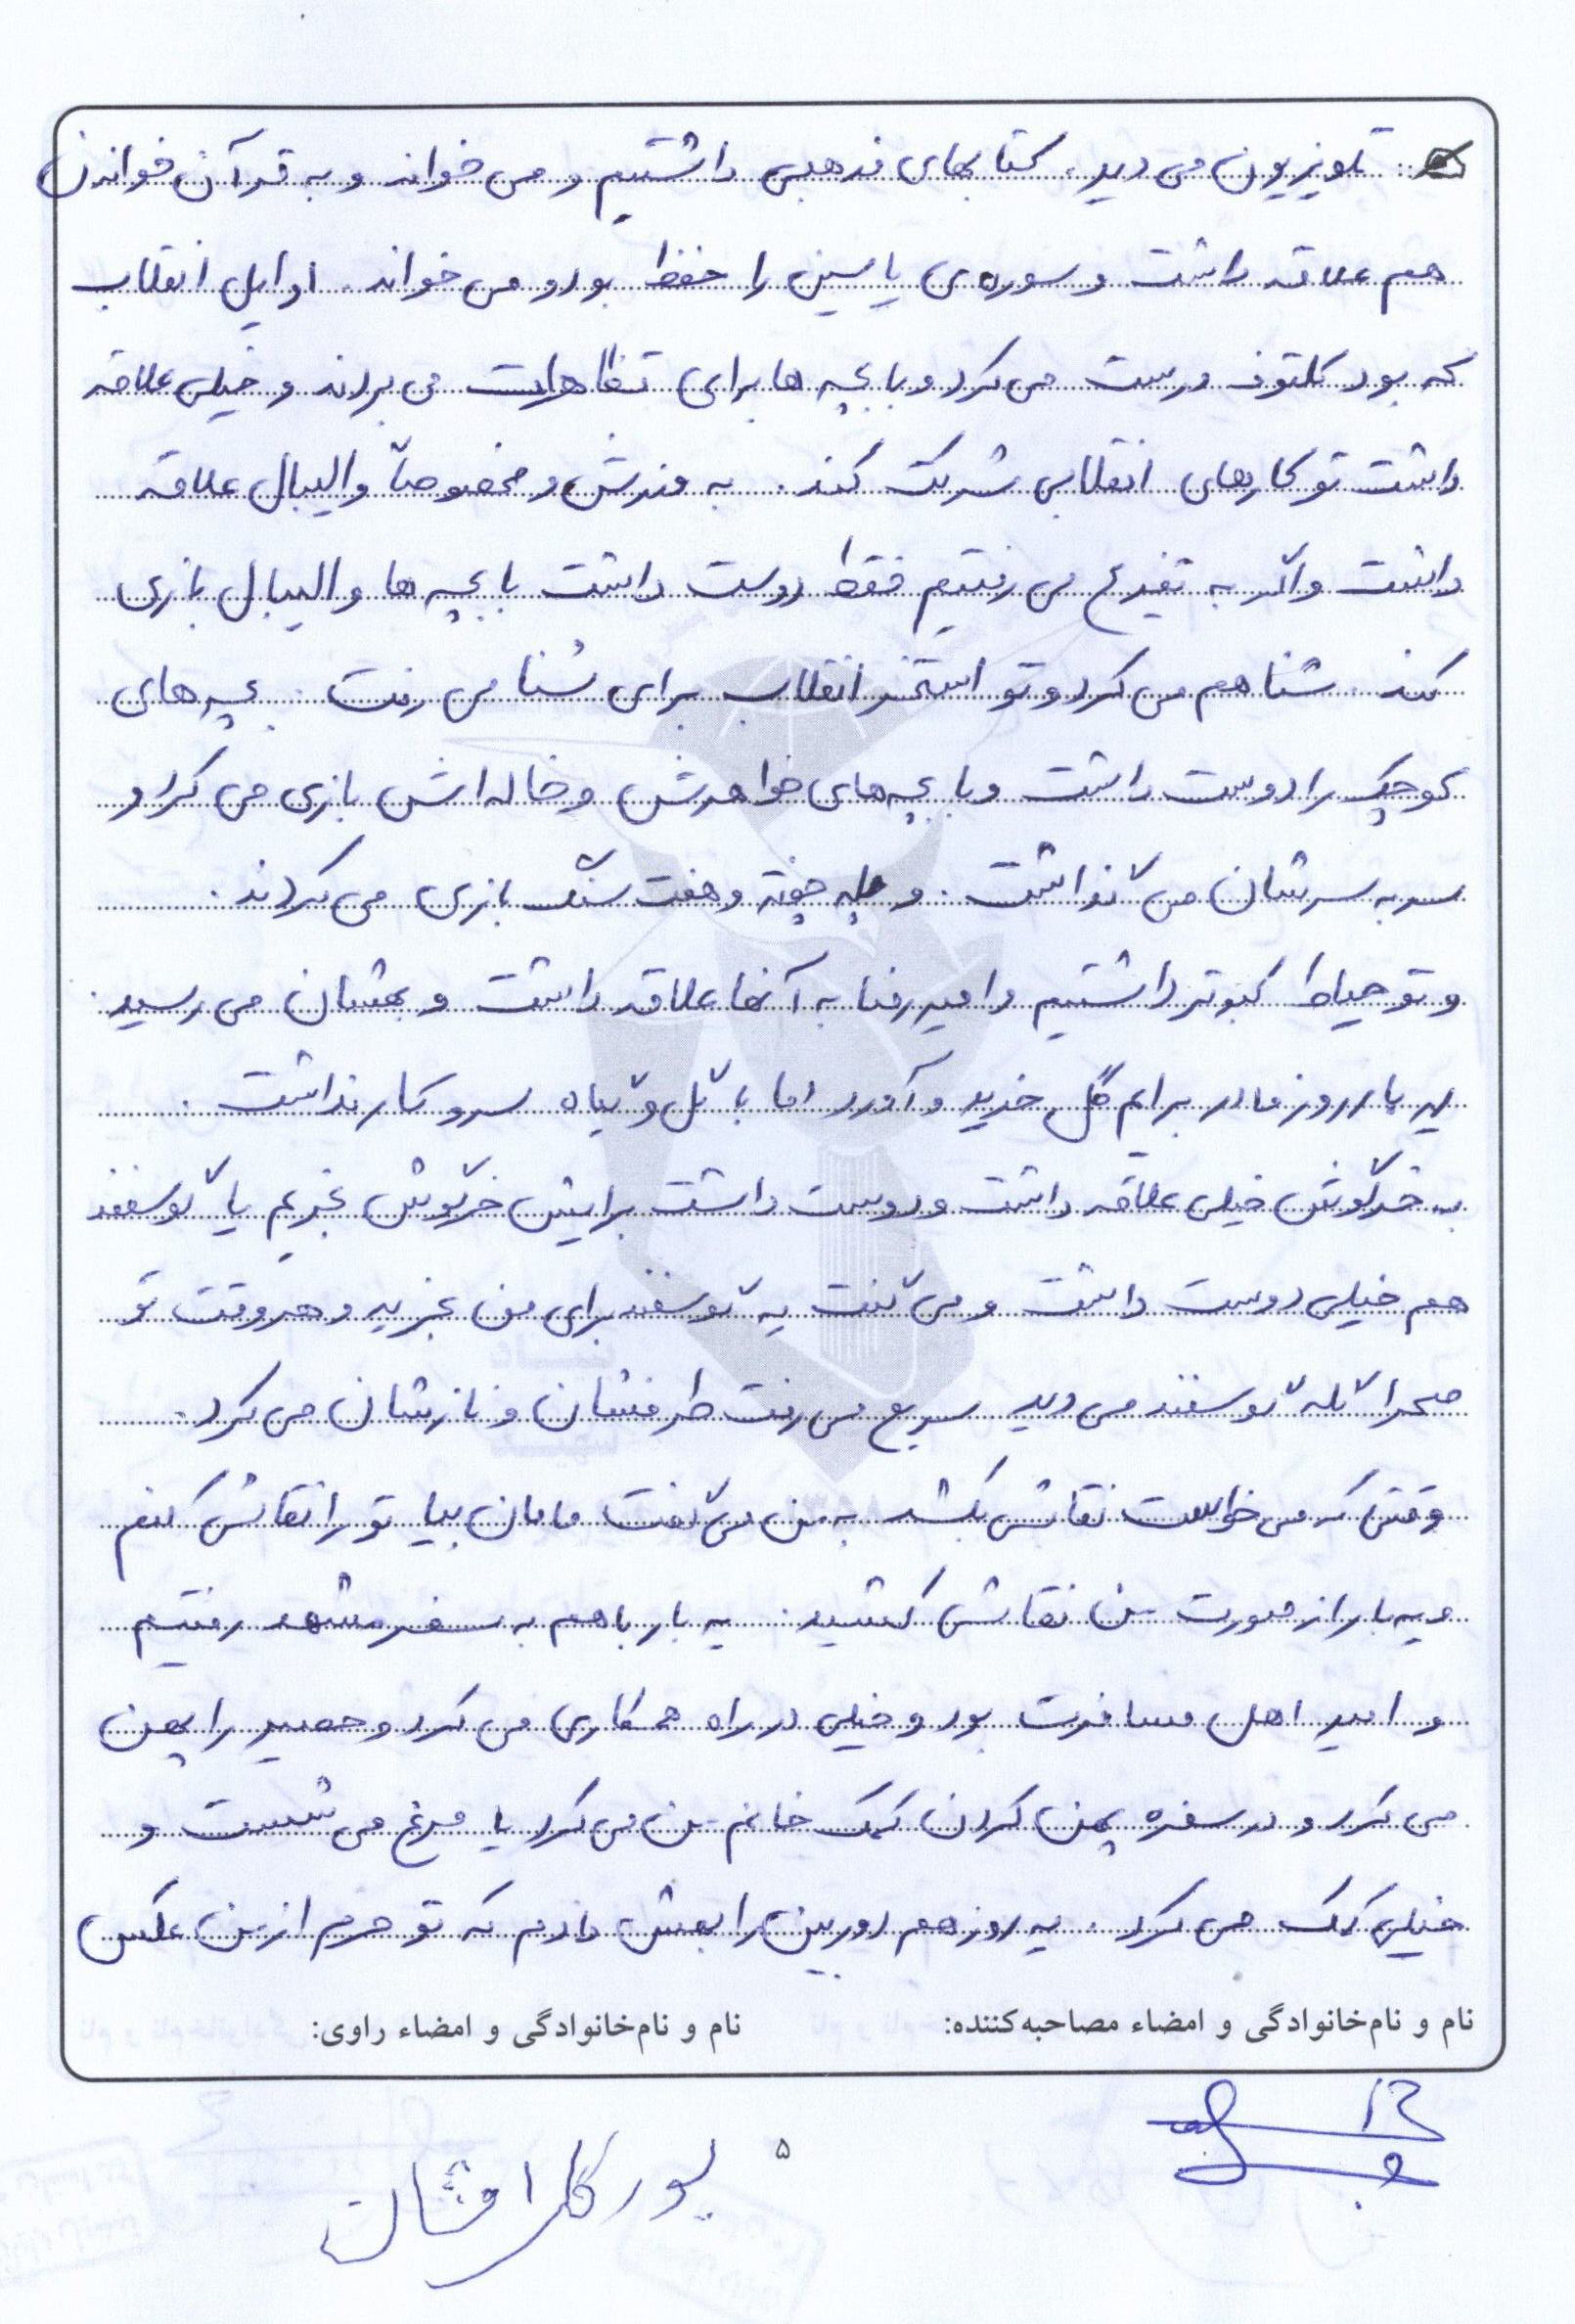 تلویزیون می دید. کتابهای مذهبی داشتیم و می خواند و به قرآن خواندن
هم علاقه داشت و سوره ی یاسین را حفظ بود و می خواند. اوایل انقلاب
که بود کلتوف درست می کرد و با بچه ها برای تظاهرات می بردند و خیلی علاقه
داشت تو کارهای انقلابی شرکت کند. به ورزش و مخصوصاً والیبال علاقه
داشت و اگر به تفریح می رفتیم فقط دوست داشت با بچه ها والیبال بازی
کند. شنا هم می کرد و تو استخر انقلاب برای شنا می رفت. بچه های
کوچک را دوست داشت و با بچه های خواهرش و خاله اش بازی می کرد و
سر به سرشان می گذاشت. و چفته و هفت سنگ بازی می کردند.
و تو حیاط کبوتر داشتیم و امیررضا به آنها علاقه داشت و بهشان می رسید.
یه بار روز مادر برایم گل خرید و آورد اما با گل و گیاه سر و کار نداشت.
به خرگوش خیلی علاقه داشت و دوست داشت برایش خرگوش بخریم یا گوسفند
هم خیلی دوست داشت و می گفت یه گوسفند برای من بخرید و هر وقت تو
صحرا گله گوسفند می دید سریع می رفت طرفشان و نازشان می کرد.
وقتی که می خواست نقاشی بکشد به من می گفت مامان بیا تو را نقاشی کنم
و یه بار از صورت من نقاشی کشید. یه بار با هم به سفر مشهد رفتیم
و امیر اهل مسافرت بود و خیلی در راه همکاری می کرد و حصیر را پهن
می کرد و در سفره پهن کردن کمک خانم من می کرد یا مرغ می شست و
خیلی کمک می کرد. یه روز هم دوربین را بهش دادم که تو حرم از من عکس
نام و نام‌خانوادگی و امضاء مصاحبه‌کننده: نام و نام‌خانوادگی و امضاء راوی:
۵
پور گل افشان